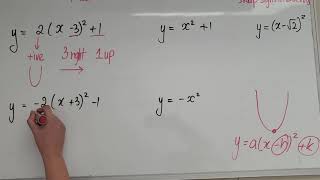 y = 2(x-3)² + 1
+ve 3 right 1 up
y = x² + 1
y = (x-√2)²
y = -2(x+3)² -1
y = -x²
y = a(x-h)² + k